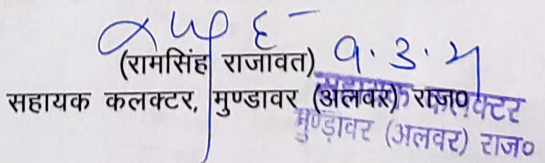 9.3.21
(रामसिंह राजावत)
सहायक कलक्टर, मुण्डावर (अलवर) राज०
सहायक कलक्टर
मुण्डावर (अलवर) राज०